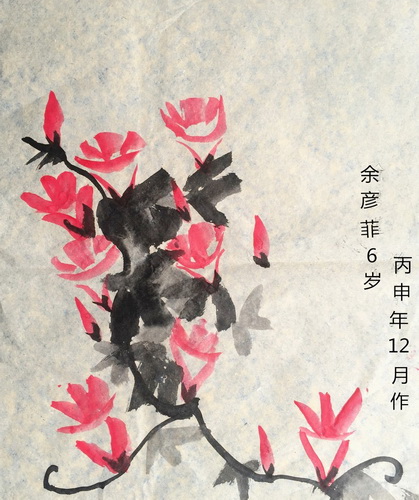 余彦菲6岁
丙申年12月作